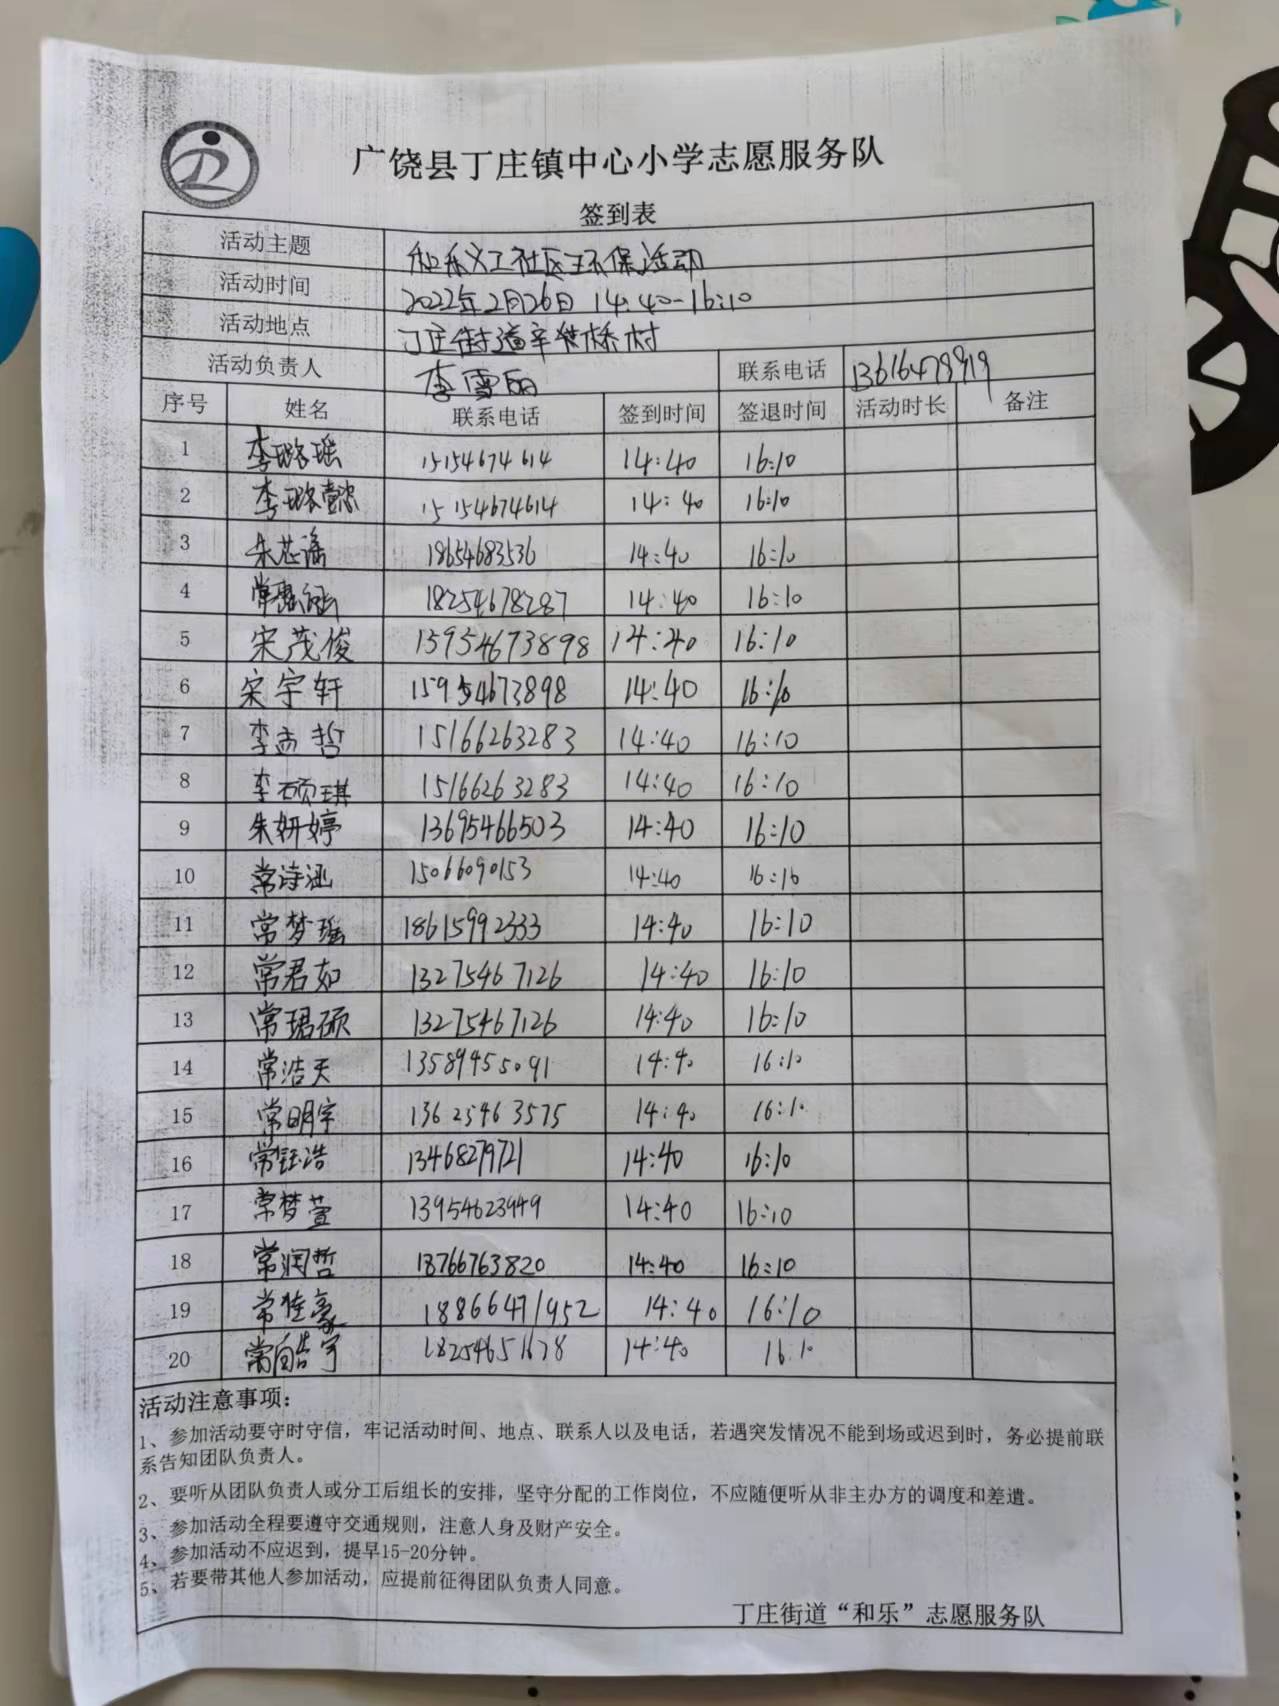 广饶县丁庄镇中心小学志愿服务队
签到表
活动主题 和乐义工社区环保活动
活动时间 2022年2月26日 14:40-16:10
活动地点 丁庄街道辛桥村
活动负责人 李雪 联系电话 13616479919
序号 姓名 联系电话 签到时间 签退时间 活动时长 备注
1 李璐瑶 15154674614 14:40 16:10
2 李璐懿 15154674614 14:40 16:10
3 朱芯潞 18654683536 14:40 16:10
4 常涵 18254678287 14:40 16:10
5 宋茂俊 15954673898 14:40 16:10
6 宋宇轩 15954673898 14:40 16:10
7 李哲 15166263283 14:40 16:10
8 李硕琪 15166263283 14:40 16:10
9 朱妍婷 13695466503 14:40 16:10
10 常诗涵 15066090153 14:40 16:10
11 常梦瑶 18615992333 14:40 16:10
12 常君如 13275467126 14:40 16:10
13 常珺硕 13275467126 14:40 16:10
14 常浩天 13589455091 14:40 16:10
15 常明宇 13625463575 14:40 16:10
16 常钰浩 13468279721 14:40 16:10
17 常梦萱 13954623949 14:40 16:10
18 常润哲 13766763820 14:40 16:10
19 常佳豪 18866471952 14:40 16:10
20 常皓宇 18254651678 14:40 16:10
活动注意事项:
1、参加活动要守时守信，牢记活动时间、地点、联系人以及电话，若遇突发情况不能到场或迟到时，务必提前联
系告知团队负责人。
2、要听从团队负责人或分工后组长的安排，坚守分配的工作岗位，不应随便听从非主办方的调度和差遣。
3、参加活动全程要遵守交通规则，注意人身及财产安全。
4、参加活动不应迟到，提早15-20分钟。
5、若要带其他人参加活动，应提前征得团队负责人同意。
丁庄街道“和乐”志愿服务队